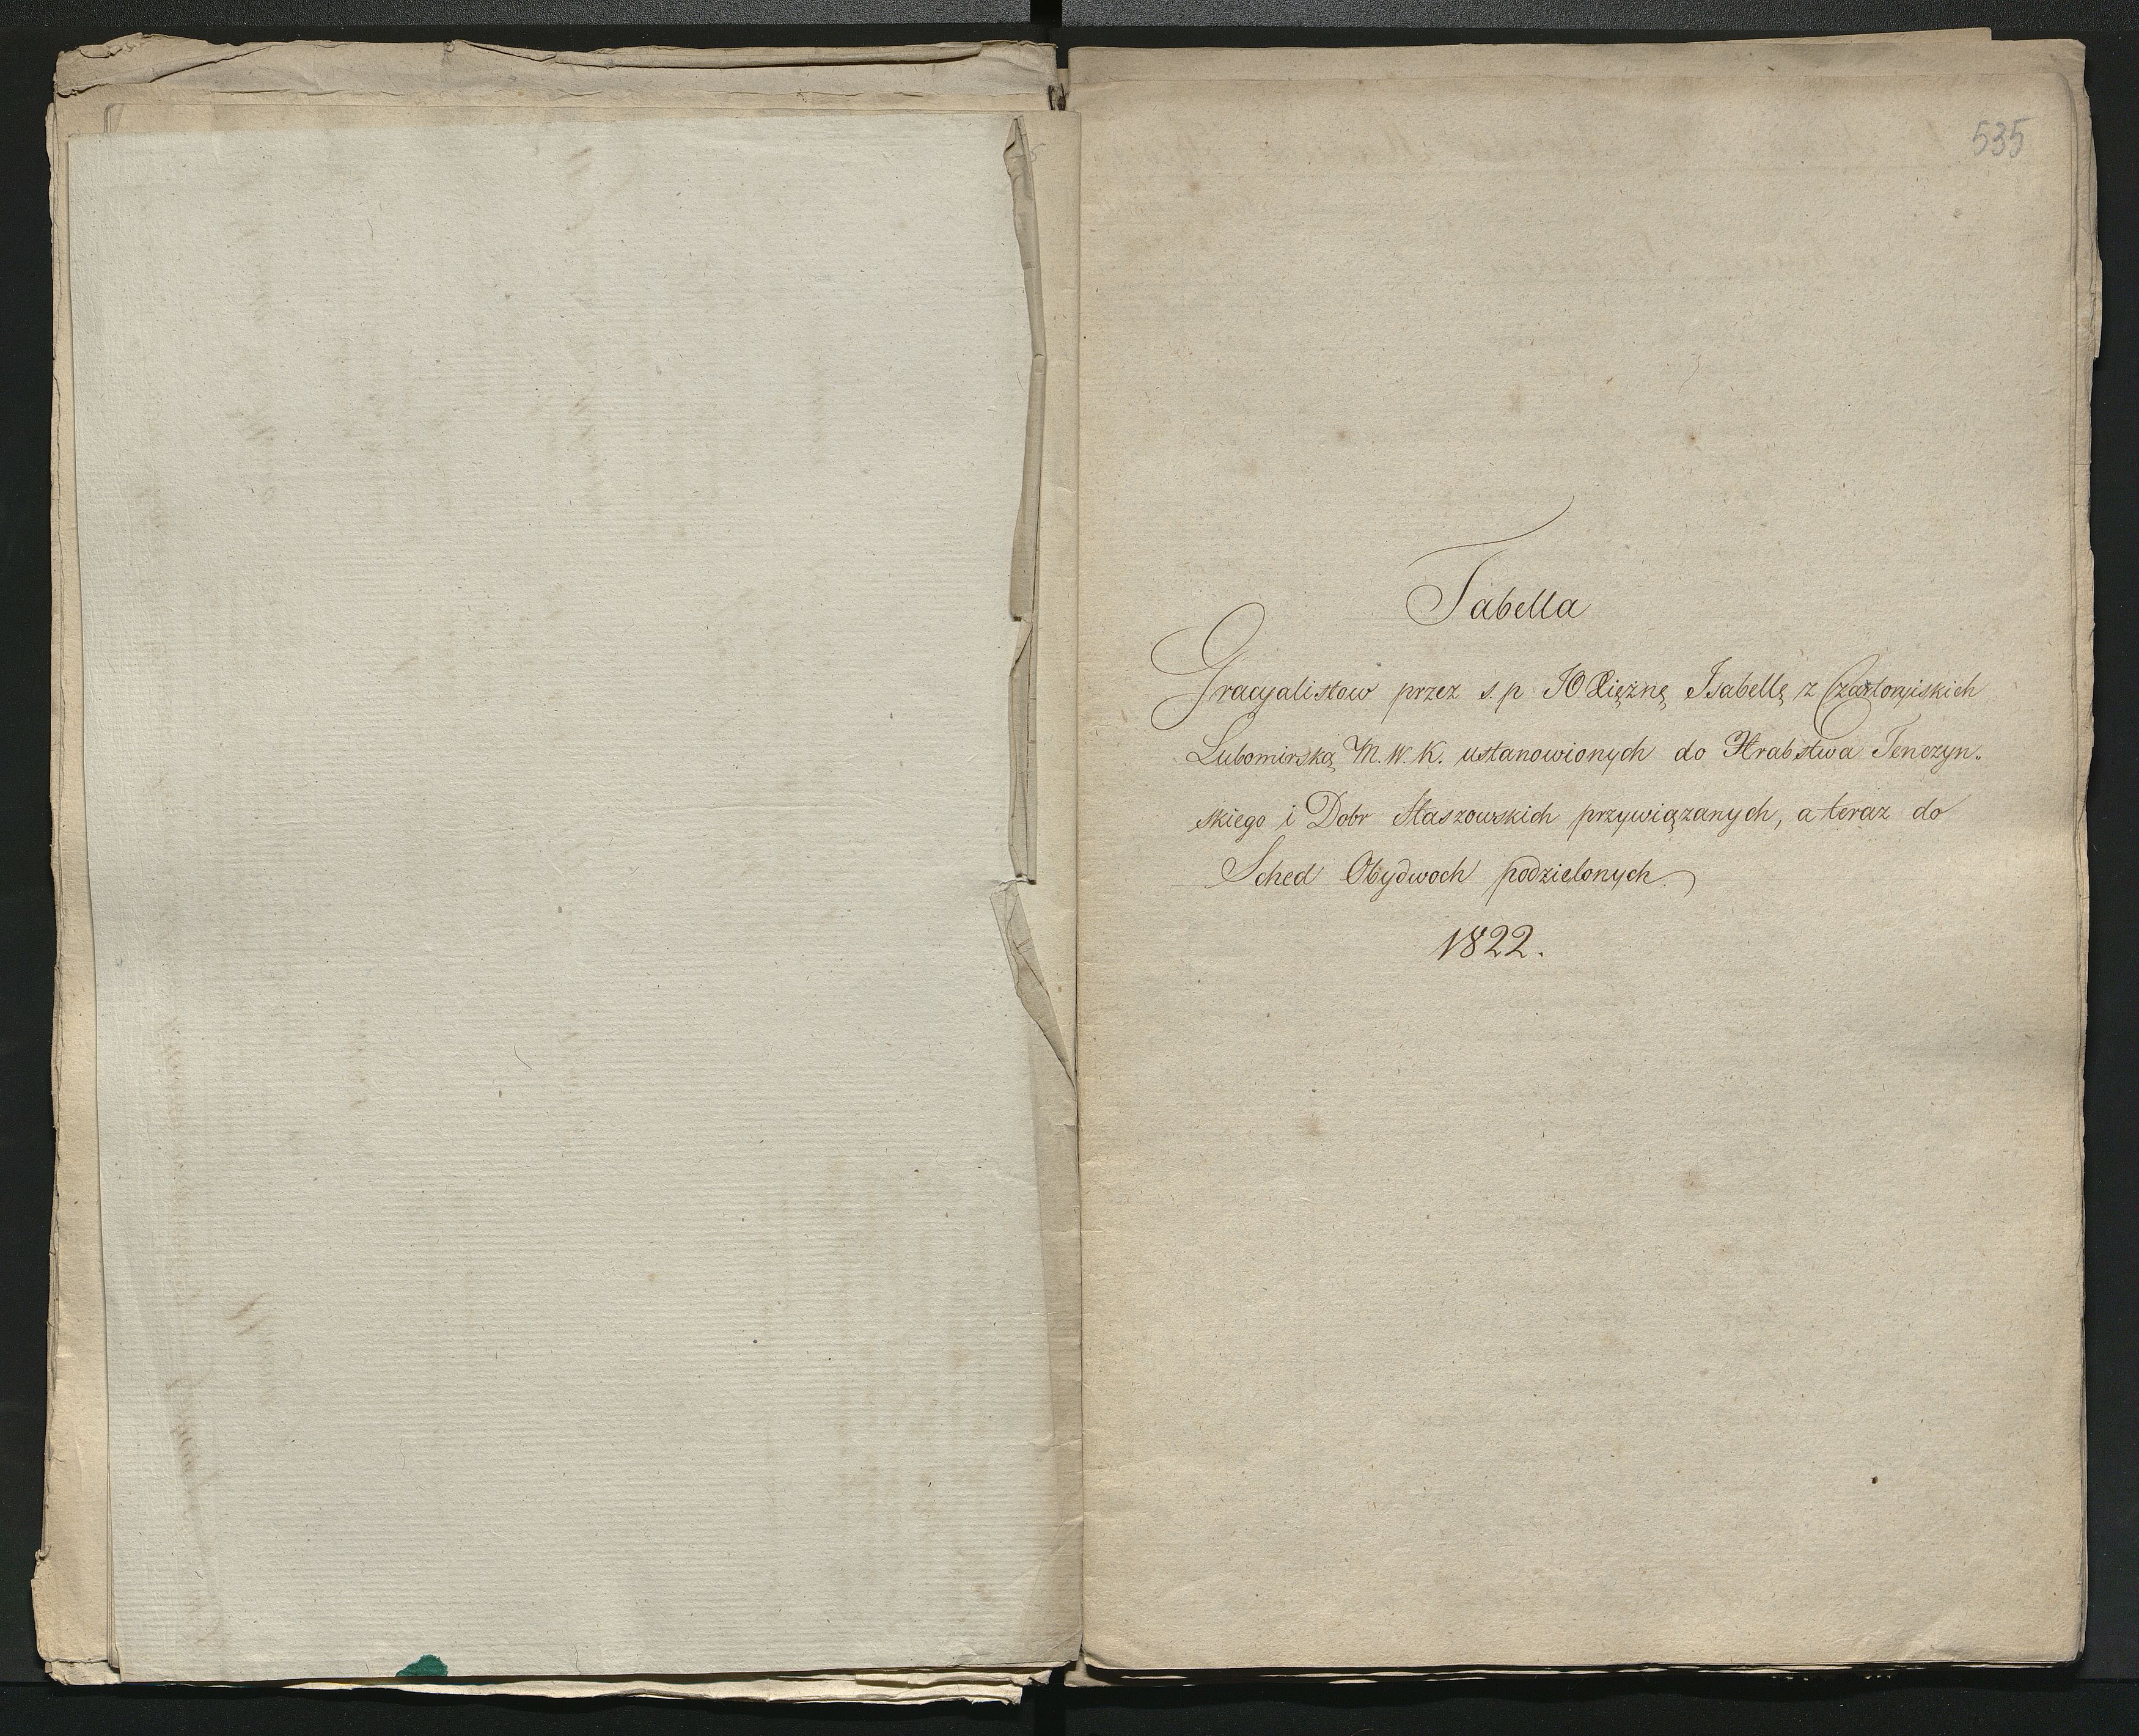 535
Tabella
Gracyalistow przez s.p JO Xiężnę Isabellę z Czartoryiskich
Lubomirską M. W. K. ustanowionych do Hrabstwa Tenczyn-
skiego i Dobr Staszowskich przywiązanych, a teraz do
Sched Obydwoch podzielonych.
1822.